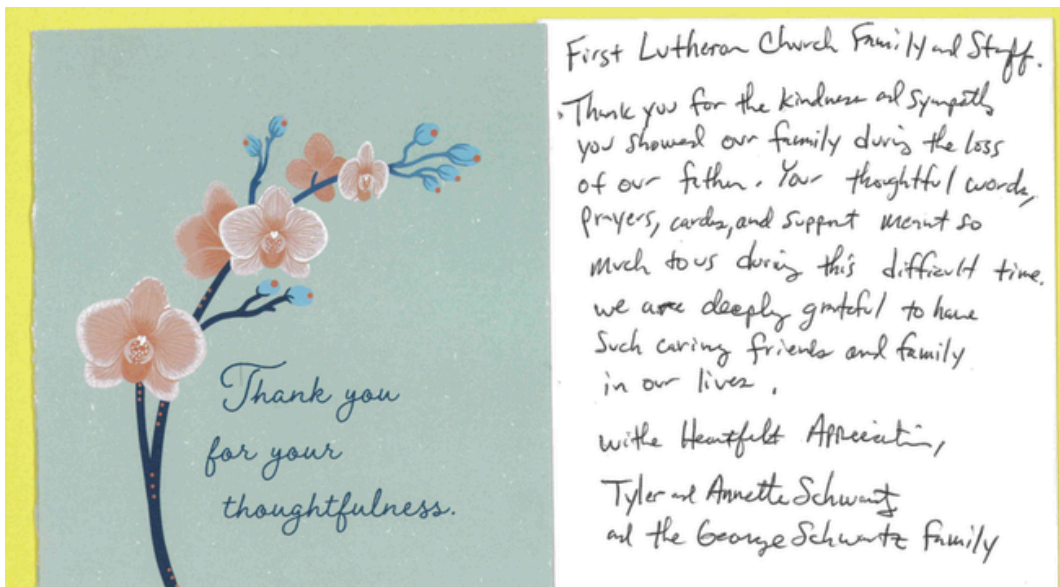 Thank you
for your
thoughtfulness.
First Lutheran Church Family and Staff.
Thank you for the kindness and sympathy
you showed our family during the loss
of our father. Your thoughtful words,
prayers, cards, and support meant so
much to us during this difficult time.
we are deeply grateful to have
Such caring friends and family
in our lives.
withe Heartfelt Appreciation,
Tyler and Annette Schwartz
and the George Schwartz Family